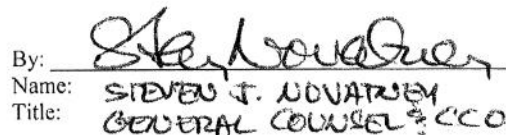 By: Steven Novatney
Name: STEVEN J. NOVATNEY
Title: GENERAL COUNSEL & CCO